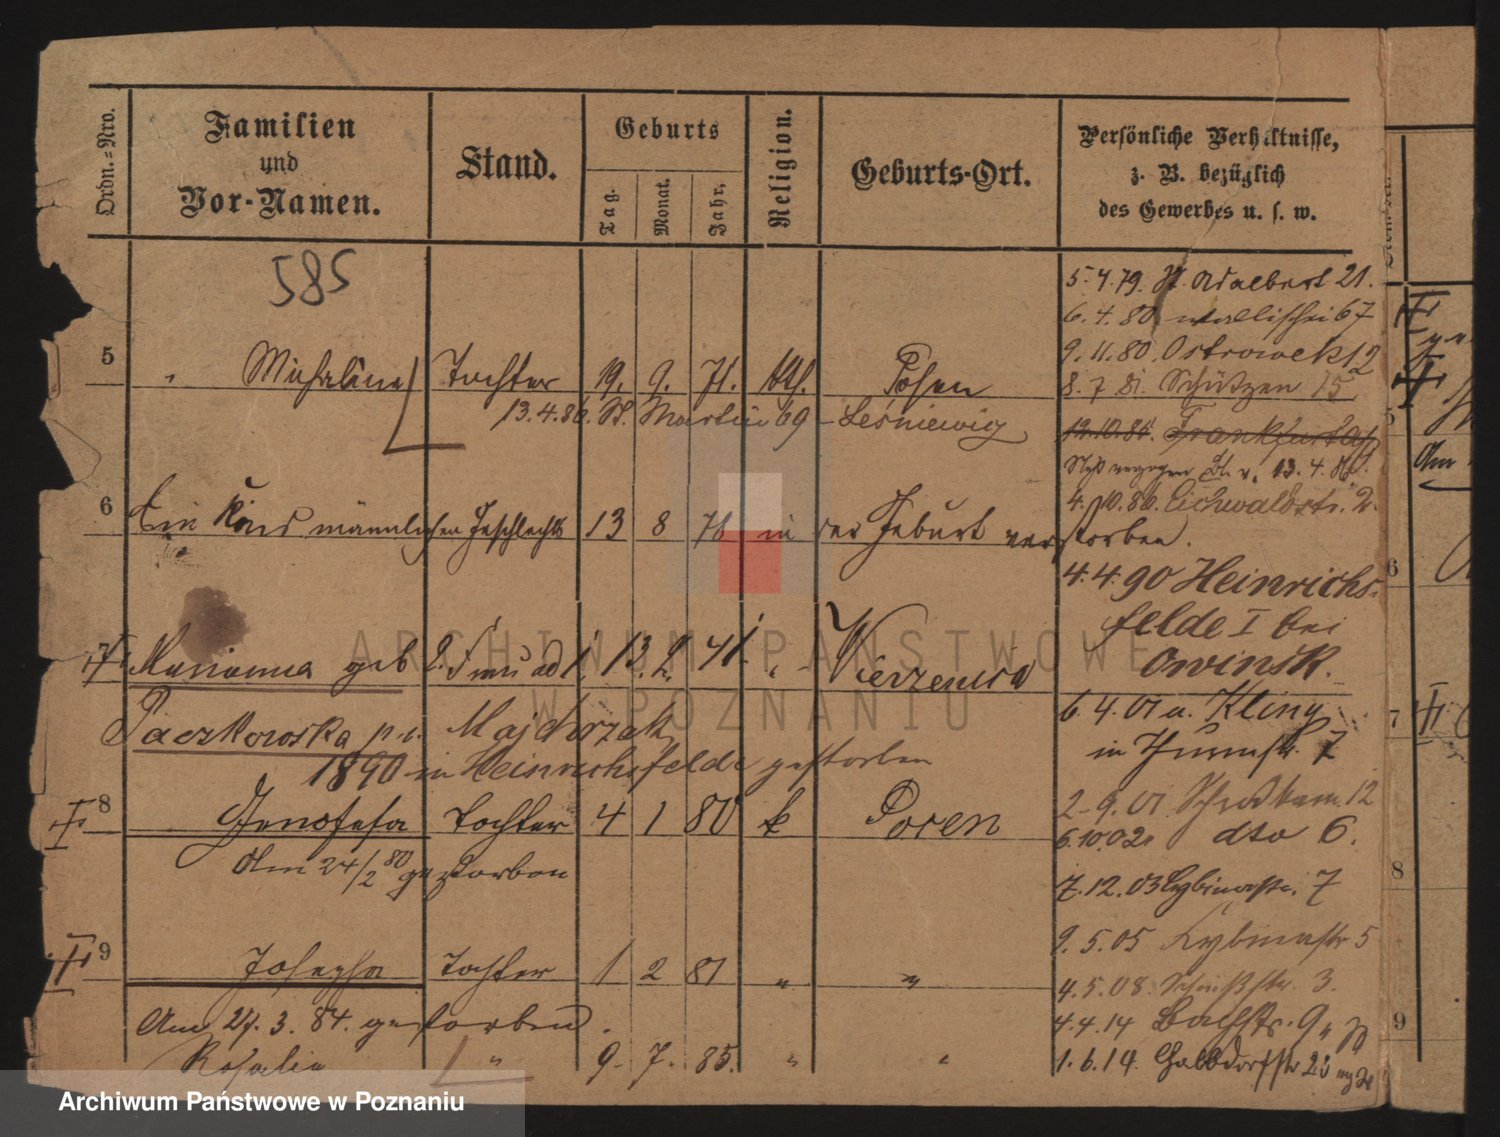 Ordn.-Nro.
Familien und Vor-Namen.
Stand.
Geburts
Tag.
Monat.
Jahr.
Religion.
Geburts-Ort.
Persönliche Verhältnisse,
z. B. bezüglich
des Gewerbes u. s. w.
585
5.4.79. St. Adalbert 21.
6.4.80 Wallischei 67
9.11.80. Ostrowek 12
5 Michalina Tochter 19. 9. 71. kth. Posen
8.7.81. Schützen 15
13.4.86. St. Martin 69 - Leśniewicz
12.10.86. Frankfurt a/
verzogen 13.4.86.
4.10.86. Eichwaldstr. 2.
6 Ein Kind männlichen Geschlechts 13 8 78 in der Geburt verstorben.
4.4.90 Heinrichs-
felde I bei
Owinsk.
7 Marianna geb 2. Frau ad 1. 13. 2. 41. " Wierzenica
Paczkowska p.v. Majchrzak
1890 in Heinrichsfelde gestorben
6.4.01 u. Kliny
in Thurmstr. 7
8 Genofefa Tochter 4 1 80 k Posen
Am 24/2 80 gestorben
2.9.01. 12
6.10.02. dto 6.
7.12.03 Cybinastr. 7
9.5.05 Cybinastr 5
9 Josepha Tochter 1 2 81 " "
4.5.08. 3.
Am 27.3.84. gestorben.
4.4.14 Bachstr. 9
Rosalie " 9. 7. 85. " "
1.6.14. 23
5
Am
6
7
8
9
ARCHIWUM PAŃSTWOWE
W POZNANIU
Archiwum Państwowe w Poznaniu